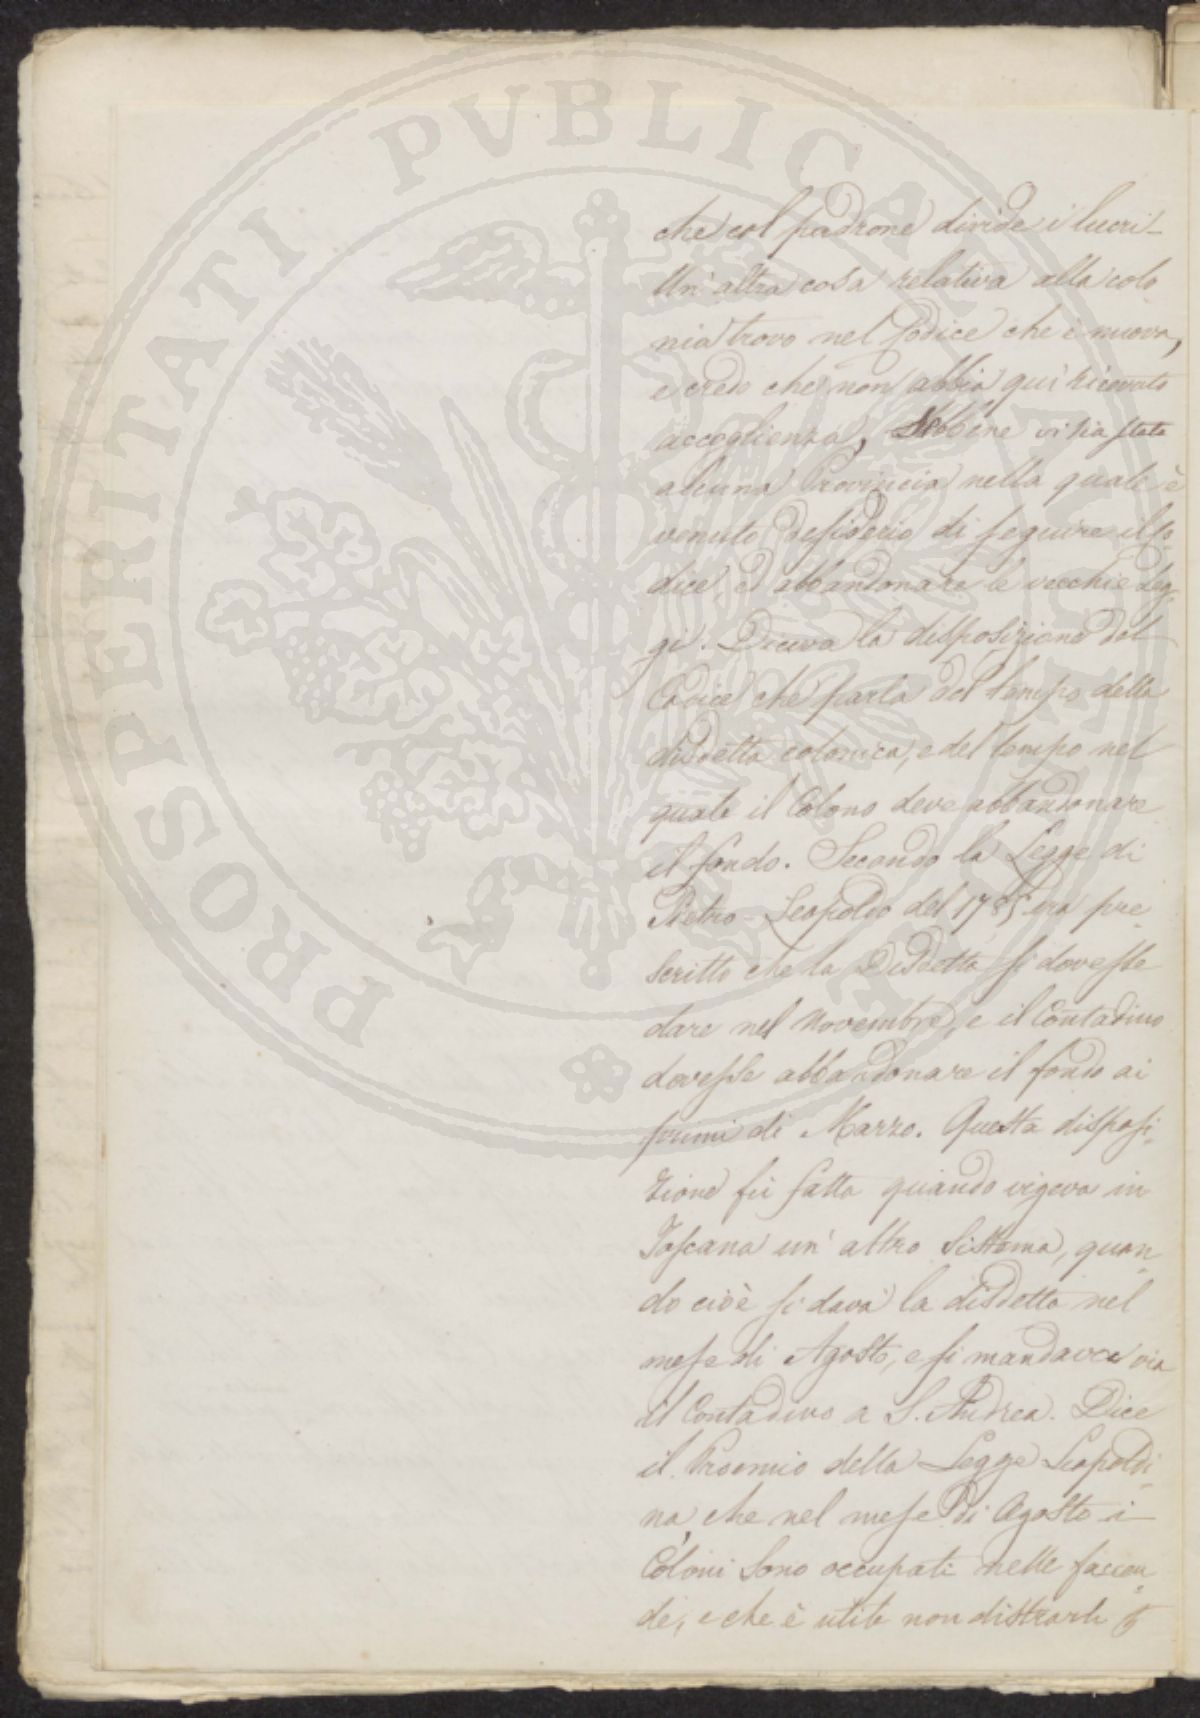 PROSPERITATI PVBLICAE
che col padrone divide i lucri_
Un' altra cosa relativa alla colo
nia trovo nel Codice che è nuova,
e credo che non abbia quì ricevuto
accoglienza, sebbene vi sia stata
alcuna Provincia nella quale è
venuto desiderio di seguire il Co-
dice, ed abbandonare le vecchie Leg-
gi. Diceva la disposizione del
Codice che parla del tempo della
disdetta colonica, e del tempo nel
quale il Colono deve abbandonare
il fondo. Secondo la Legge di
Pietro Leopoldo del 1785 era pre_
scritto che la Disdetta si dovesse
dare nel Novembre, e il Contadino
dovesse abbandonare il fondo ai
primi di Marzo. Questa disposi_
zione fù fatta quando vigeva in
Toscana un' altro Sistema, quan_
do cioè si dava la disdetta nel
mese di Agosto, e si mandava via
il Contadino a S. Andrea. Dice
il Proemio della Legge Leopoldi_
na, che nel mese di Agosto i
Coloni sono occupati nelle faccen_
de, e che è utile non distrarli